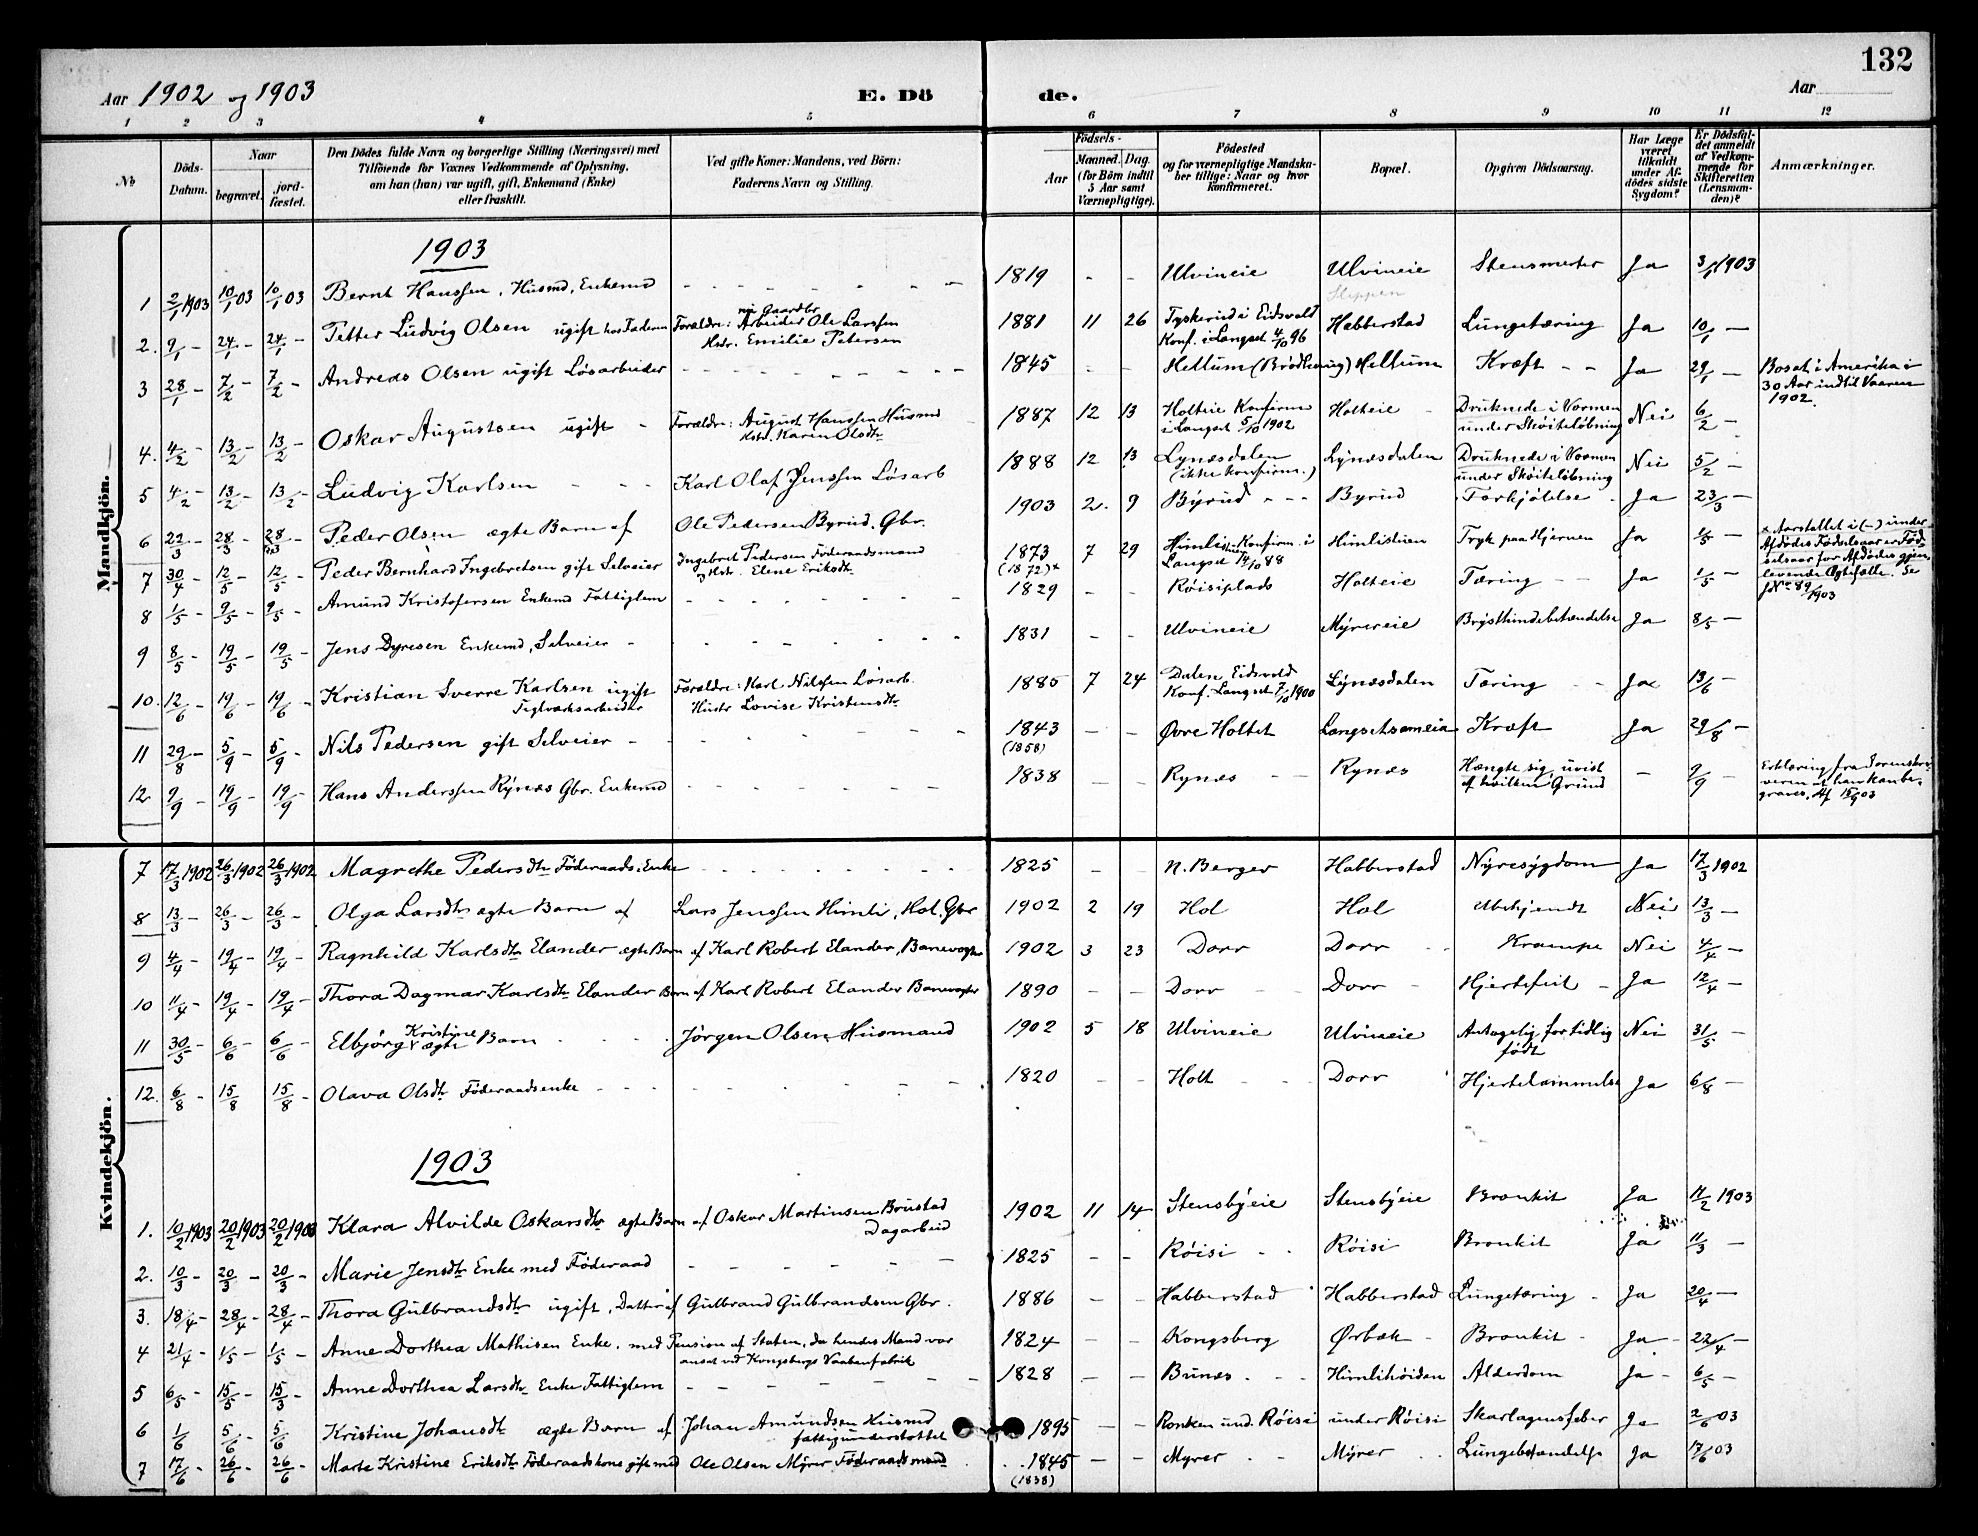 132
Aar 1902 og 1903 E. Dö de. Aar
1 2 3 4 5 6 7 8 9 10 11 12
No
Döds-Datum.
Naar
begravet.
jordfæstet.
Den Dödes fulde Navn og borgerlige Stilling (Næringsvei) med
Tilföiende for Voxnes Vedkommende af Oplysning,
om han (hun) var ugift, gift, Enkemand (Enke)
eller fraskilt.
Ved gifte Koner: Mandens, ved Börn:
Faderens Navn og Stilling.
Födsels-
Aar
Maaned. Dag.
(for Börn indtil
5 Aar samt
Værnepligtige).
Födested
og for værnepligtige Mandska-
ber tillige: Naar og hvor
konfirmeret.
Bopæl.
Opgiven Dödsaarsag.
Har Læge
været
tilkaldt
under Af-
dödes sidste
Sygdom?
Er Dödsfal-
det anmeldt
af Vedkom-
mende for
Skifteretten
(Lensman-
den)?
Anmærkninger.
Mandkjön.
1903
1 2/1 1903 10/1 03 10/1 03 Bernt Hanssen, Husmd, Enkemd - - 1819 - - Ulvineie Ulvineie Stensmerter Ja 3/1 1903
2. 9/1 - 24/1 - 24/1 - Petter Ludvig Olsen ugift hos Faderen Forældre: Arbeider Ole Larssen
Hstr. Emilie Petersen 1881 11 26 Tyskerud i Eidsvold
Konf. i Langset 4/10 96 Habberstad Lungetæring Ja 10/1 -
3 28/1 - 7/2 - 7/2 - Andreas Olsen ugift Løsarbeider - - 1845 - - Hellum (Brödhaug) Hellum Kræft - - Ja 29/1 - Bosat i Amerika i
30 Aar indtil Vaaren
1902.
4. 4/2 - 13/2 - 13/2 - Oskar Augustsen ugift - Forældre: August Hanssen Husmd
Hstr. Karen Olsdtr 1887 12 13 Holteie Konfirm.
i Langset 5/10 1902 Holteie Druknede i Vormen
under Skøiteløbning Nei 6/2 -
5 4/2 - 13/2 - 13/2 - Ludvig Karlsen - - Karl Olaf Jenssen Løsarb 1888 12 13 Lynæsdalen
(ikke konfirm.) Lynæsdalen Druknede i Vormen
under Skøiteløbning Nei 5/2 -
6 22/3 - 28/3 - 28/3 - Peder Olsen ægte Barn af Ole Pedersen Byrud, Gbr. 1903 2. 9 Byrud - - - Byrud Forkjølelse Ja 23/3 -
7 30/4 - 12/5 - 12/5 - Peder Bernhard Ingebretsen gift Selveier Ingebret Pedersen Föderaadsmand
og Hstr. Elene Eriksdtr 1873
(1872)x 7 29 Konfirm. i
Langset 14/10 88 Himlistuen Tryk paa Hjernen Ja 1/5 - x Aarstallet i (-) under
Afdödes Födselsaar er Föd-
selsaar for Afdödes gjen-
levende Ægtefælle. Se
JNo 89/1903
8 1/5 - 9/5 - 9/5 - Amund Kristofersen Enkemd Fattiglem - - 1829 - - Røisiplads Holteie Tæring - - Ja 1/5 -
9 8/5 19/5 - 19/5 - Jens Dyresen Enkemd, Selveier - - 1831 - - Ulvineie Myrereie Brysthindebetændelse Ja 8/5 -
10. 12/6 - 19/6 - 19/6 - Kristian Sverre Karlsen ugift
Teglverksarbeider Forældre: Karl Nilssen Løsarb.
Hustr Lovise Kristensdtr 1885 7 24 Dalen, Eidsvold
Konf. Langset 7/10 1900 Lynæsdalen Tæring - - Ja 13/6 -
11 29/8 - 5/9 - 5/9 - Nils Pedersen gift Selveier - - 1843
(1858) - - Øvre Holtet Langsetsameia Kræft Ja 29/8 -
12. 9/9 - 19/9 - 19/9 - Hans Anderssen Rynæs Gbr. Enkemd - - 1838 - - Rynæs - - Rynæs Hængte sig, uvist
af hvilken Grund - 9/9 Erklæring fra Sorenskri-
veren at han kan be-
graves. Af 15/9 03
Kvindekjön.
7 17/3 1902 26/3 1902 26/3 1902 Magrethe Pedersdtr Föderaads-Enke - - 1825 - - N. Berger Habberstad Nyresygdom Ja 17/3 1902
8 13/3 - 26/3 - 26/3 - Olga Larsdtr ægte Barn af Lars Jenssen Himli, Hol, Gbr 1902 2 19 Hol Hol Ubekjendt Nei 13/3 -
9 4/4 - 19/4 - 19/4 - Ragnhild Karlsdtr Elander ægte Barn af Karl Robert Elander, Banevogter 1902 3 23 Dorr Dorr Krampe Nei 4/4 -
10 11/4 - 19/4 - 19/4 - Thora Dagmar Karlsdtr Elander Barn af Karl Robert Elander Banevogter 1890 - - Dorr Dorr Hjertefeil - Ja 12/4 -
11 30/5 - 6/6 - 6/6 - Elbjørg Kristine ægte Barn Jörgen Olsen Husmand 1902 5 18 Ulvineie Ulvineie Antagelig for tidlig
født Nei 31/5 -
12. 6/8 - 15/8 15/8 - Olava Olsdtr Föderaadsenke - - 1820 - - Holt Dorr Hjertelammelse Ja 6/8 -
1903
1. 10/2 1903 20/2 1903 20/2 1903 Klara Alvilde Oskarsdtr ægte Barn af Oskar Martinsen Brustad
Dagarbeid 1902 11 14 Stensbyeie Stensbyeie Bronkit Ja 11/2 1903
2. 10/3 - 20/3 - 20/3 - Marie Jensdtr Enke med Föderaad - - 1825 - - Røisi Røisi Bronkit Ja 11/3 -
3. 18/4 - 28/4 - 28/4 - Thora Gulbrandsdtr ugift, Datter af Gulbrand Gulbrandsen Gbr. 1886 - - Habberstad Habberstad Lungetæring - Ja 20/4 -
4 21/4 - 1/5 - 1/5 - Anne Dorthea Mathisen Enke, med Pension af Staten, da hendes Mand var
ansat ved Kongsbergs Vaabenfabrik 1824 - - Kongsberg Ørbæk Bronkit Ja 22/4 -
5 6/5 - 15/5 - 15/3 - Anne Dorthea Larsdtr Enke Fattiglem - - 1828 - - Bunæs Himlihöiden Alderdom Ja - 6/5 -
6 1/6 5/6 - 5/6 Kristine Johansdtr ægte Barn af Johan Amundsen Husmd
fattigunderstøttet 1895 - - Ronken und. Röisi under Röisi Skarlagensfeber Ja 2/6 03
7 17/6 - 26/6 - 26/6 - Marte Kristine Eriksdtr Föderaadskone gift med Ole Olsen Myrer Föderaadsmand 1845
(1838) - - Myrer Myrer Lungebetændelse Ja 17/6 03